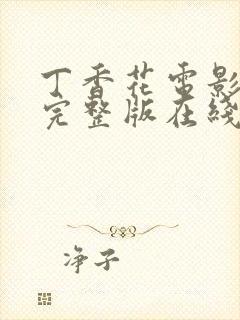 丁香花电影
完整版在线
净子